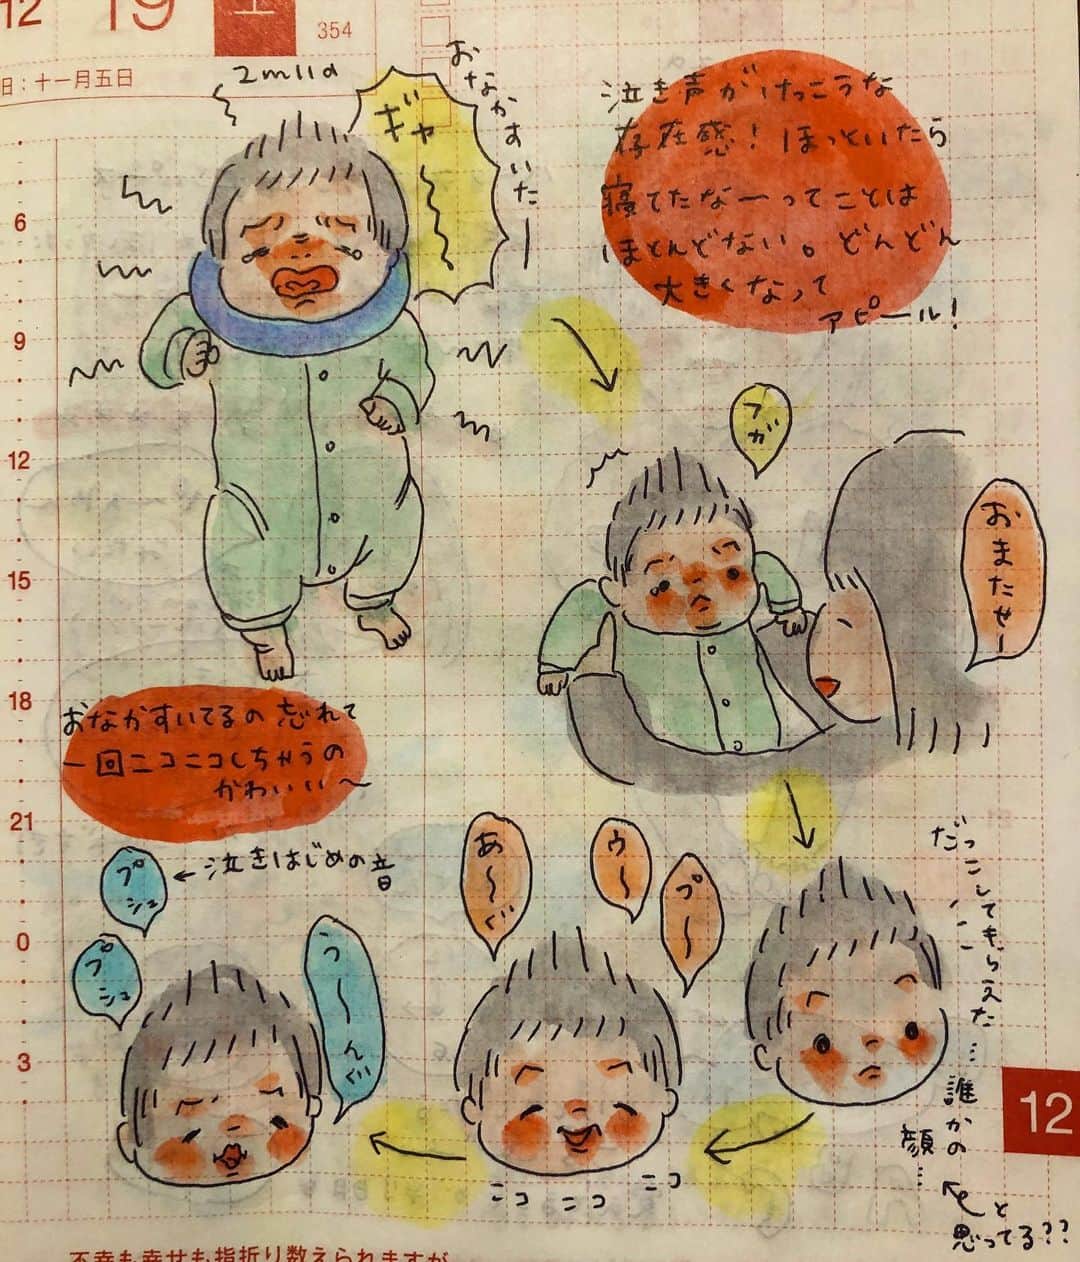 12 19 土
354
日：十一月五日
2m11d
おなかすいたー
ギャー
泣き声がけっこうな
存在感！ほっといたら
寝てたなーってことは
ほとんどない。どんどん
大きくなって
アピール！
フガ
おまたせー
だっこしてもらえた…
誰かの
顔…
と
思ってる??
あ〜ぐ
ウ〜
プ〜
ニコ ニコ ニコ
おなかすいてるの忘れて
一回ニコニコしちゃうの
かわいい〜
プシュ
←泣きはじめの音
プシュ
う〜んぐ
6
9
12
15
18
21
0
3
12
不幸も幸せも指折り数えられますが